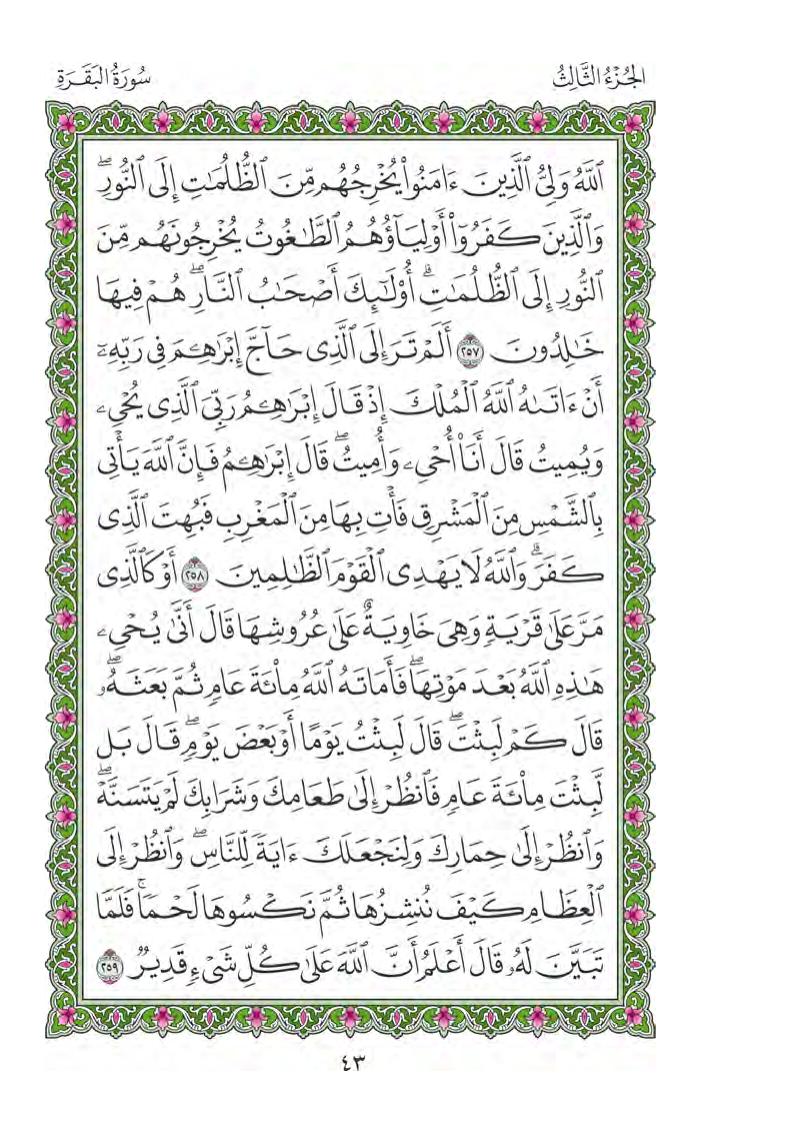 الجُزْءُ الثَّالِثُ
سُورَةُ البَقَرَةِ
ٱللَّهُ وَلِيُّ ٱلَّذِينَ ءَامَنُوا۟ يُخْرِجُهُم مِّنَ ٱلظُّلُمَٰتِ إِلَى ٱلنُّورِ ۖ
وَٱلَّذِينَ كَفَرُوٓا۟ أَوْلِيَآؤُهُمُ ٱلطَّٰغُوتُ يُخْرِجُونَهُم مِّنَ
ٱلنُّورِ إِلَى ٱلظُّلُمَٰتِ ۗ أُو۟لَٰٓئِكَ أَصْحَٰبُ ٱلنَّارِ ۖ هُمْ فِيهَا
خَٰلِدُونَ ٢٥٧ أَلَمْ تَرَ إِلَى ٱلَّذِى حَآجَّ إِبْرَٰهِۦمَ فِى رَبِّهِۦٓ
أَنْ ءَاتَىٰهُ ٱللَّهُ ٱلْمُلْكَ إِذْ قَالَ إِبْرَٰهِۦمُ رَبِّىَ ٱلَّذِى يُحْىِۦ
وَيُمِيتُ قَالَ أَنَا۠ أُحْىِۦ وَأُمِيتُ ۖ قَالَ إِبْرَٰهِۦمُ فَإِنَّ ٱللَّهَ يَأْتِى
بِٱلشَّمْسِ مِنَ ٱلْمَشْرِقِ فَأْتِ بِهَا مِنَ ٱلْمَغْرِبِ فَبُهِتَ ٱلَّذِى
كَفَرَ ۗ وَٱللَّهُ لَا يَهْدِى ٱلْقَوْمَ ٱلظَّٰلِمِينَ ٢٥٨ أَوْ كَٱلَّذِى
مَرَّ عَلَىٰ قَرْيَةٍ وَهِىَ خَاوِيَةٌ عَلَىٰ عُرُوشِهَا قَالَ أَنَّىٰ يُحْىِۦ
هَٰذِهِ ٱللَّهُ بَعْدَ مَوْتِهَا ۖ فَأَمَاتَهُ ٱللَّهُ مِا۟ئَةَ عَامٍ ثُمَّ بَعَثَهُۥ ۖ
قَالَ كَمْ لَبِثْتَ ۖ قَالَ لَبِثْتُ يَوْمًا أَوْ بَعْضَ يَوْمٍ ۖ قَالَ بَل
لَّبِثْتَ مِا۟ئَةَ عَامٍ فَٱنظُرْ إِلَىٰ طَعَامِكَ وَشَرَابِكَ لَمْ يَتَسَنَّهْ ۖ
وَٱنظُرْ إِلَىٰ حِمَارِكَ وَلِنَجْعَلَكَ ءَايَةً لِّلنَّاسِ ۖ وَٱنظُرْ إِلَى
ٱلْعِظَامِ كَيْفَ نُنشِزُهَا ثُمَّ نَكْسُوهَا لَحْمًا ۚ فَلَمَّا
تَبَيَّنَ لَهُۥ قَالَ أَعْلَمُ أَنَّ ٱللَّهَ عَلَىٰ كُلِّ شَىْءٍ قَدِيرٌ ٢٥٩
٤٣